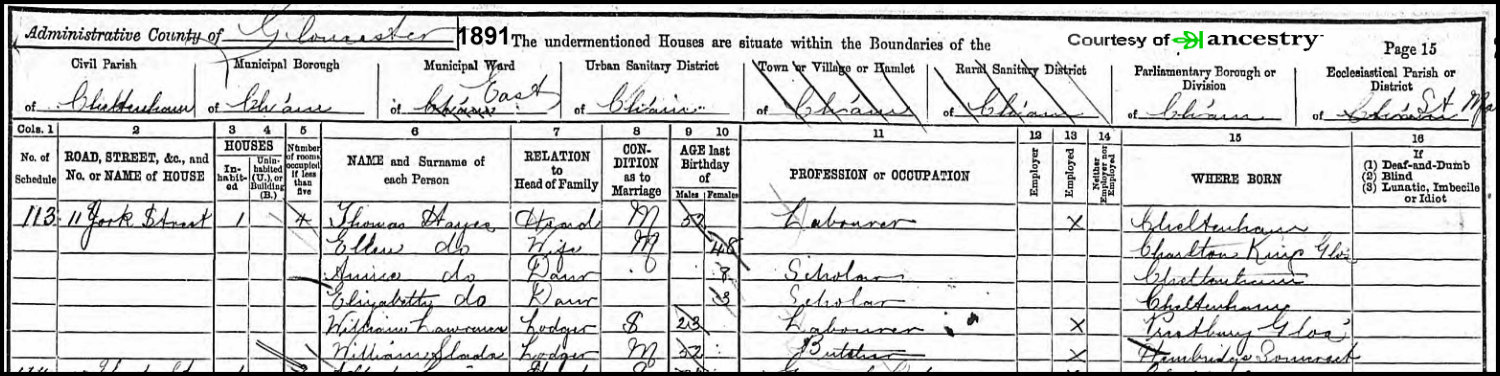 Administrative County of Gloucester 1891 The undermentioned Houses are situate within the Boundaries of the Courtesy of ancestry Page 15
Civil Parish Municipal Borough Municipal Ward Urban Sanitary District Town or Village or Hamlet Rural Sanitary District Parliamentary Borough or Division Ecclesiastical Parish or District
of Cheltenham of Ch'am of Ch'am East of Ch'am of Ch'am of Ch'am of Ch'am of Ch'am St
Cols. 1 2 3 4 5 6 7 8 9 10 11 12 13 14 15 16
No. of Schedule ROAD, STREET, &c., and No. or NAME of HOUSE HOUSES Inhabited Uninhabited (U.), or Building (B.) Number of rooms occupied if less than five NAME and Surname of each Person RELATION to Head of Family CONDITION as to Marriage AGE last Birthday of Males Females PROFESSION or OCCUPATION Employer Employed Neither Employer nor Employed WHERE BORN If (1) Deaf-and-Dumb (2) Blind (3) Lunatic, Imbecile or Idiot
113 11 York Street 1 4 Thomas Hayes Head M 52 Labourer X Cheltenham
Ellen do Wife M 48 Charlton Kings Glos
Annie do Daur 8 Scholar Cheltenham
do Daur 3 Scholar Cheltenham
William Lawrence Lodger S 23 Labourer X Prestbury Glos
William Slade Lodger M 52 Butcher X Hambridge Somerset